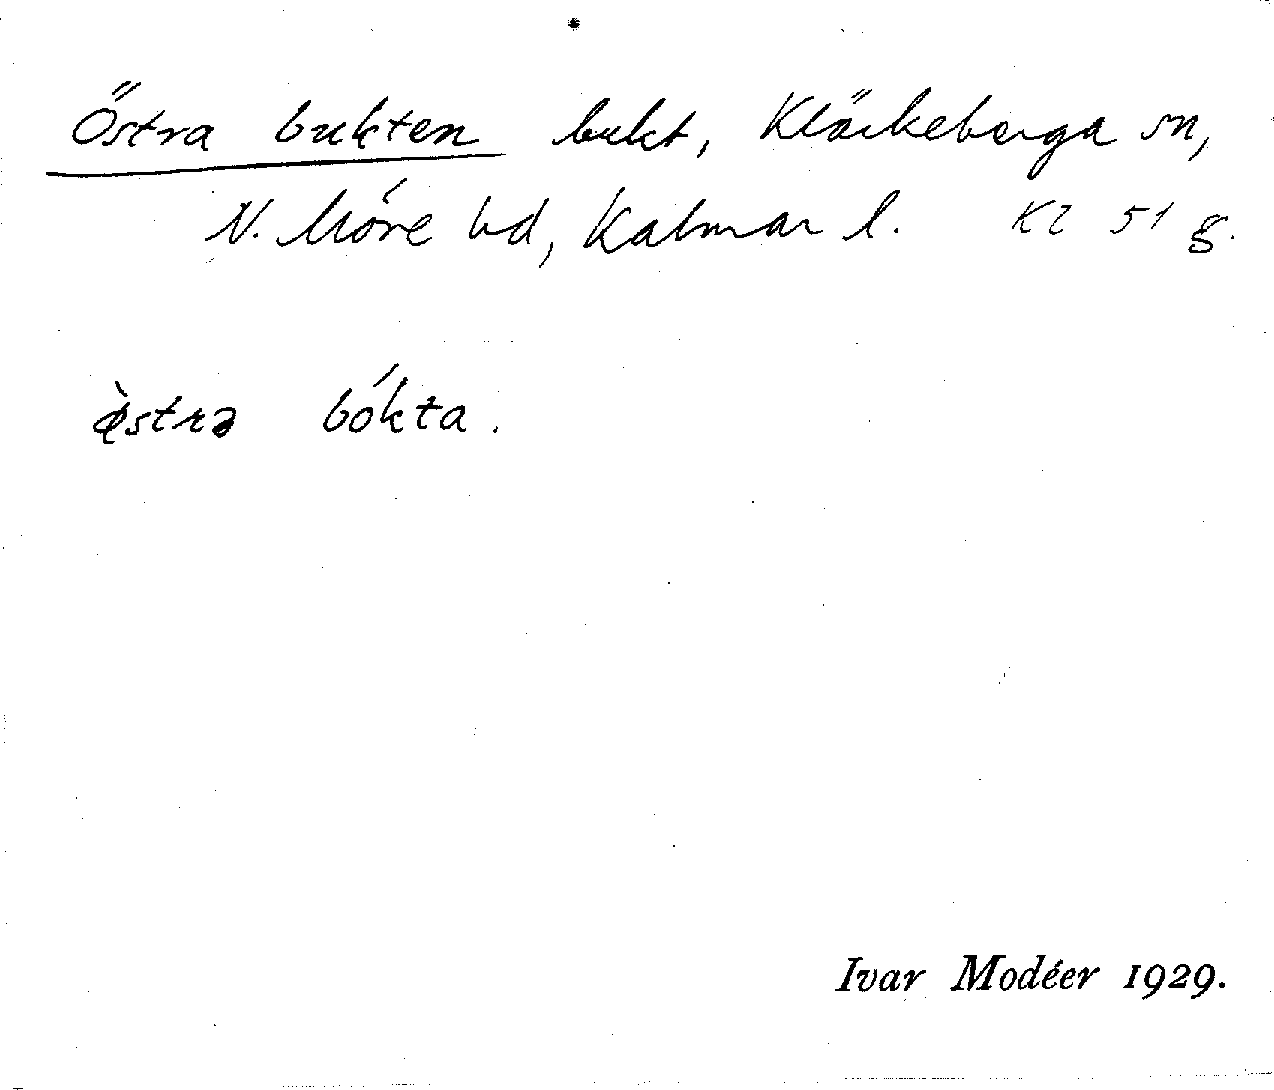 Östra bukten bukt, Kläckeberga sn,
N. Möre hd, Kalmar l. Kl 51 g.
ø̀strə bókta.
Ivar Modéer 1929.